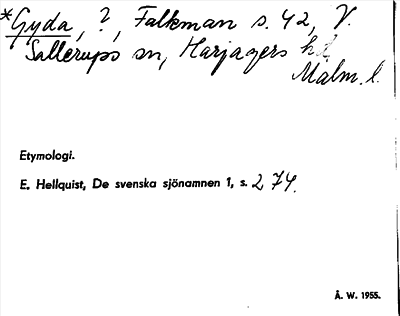 *Gyda, ?, Falkman s. 42, V.
Sallerups sn, Harjagers hd
Malm. l.
Etymologi.
E. Hellquist, De svenska sjönamnen 1, s. 274.
Å. W. 1955.